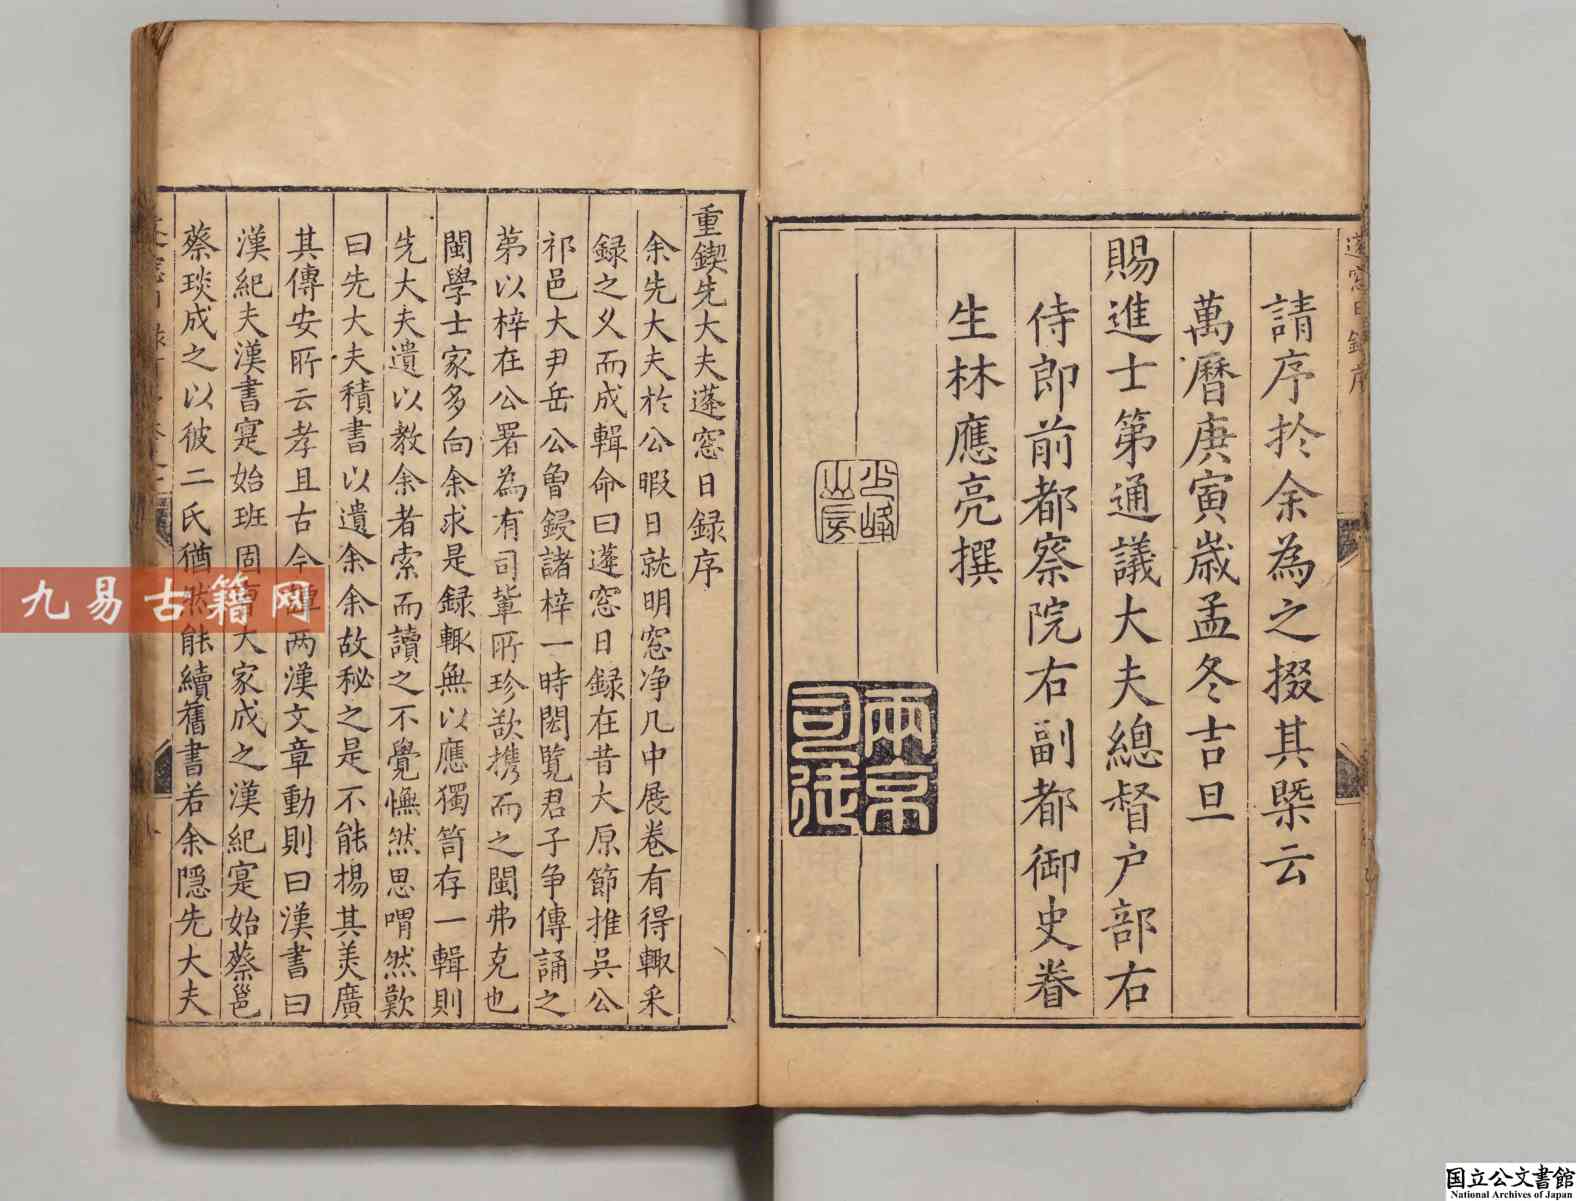 請序扵余為之掇其槩云
萬曆庚寅歲孟冬吉旦
賜進士第通議大夫總督户部右
侍郎前都察院右副都御史眷
生林應亮撰
兩京
司徒
重鍥先大夫蓬窓日録序
余先大夫扵公暇日就明窓净几中展卷有得輙采
録之乆而成輯命曰蓬窓日録在昔大原節推吳公
祁邑大尹岳公曾鋟諸梓一時閎覽君子争傳誦之
第以梓在公署為有司輩所珍欲携而之閩弗克也
閩學士家多向余求是録輙無以應獨笥存一輯則
先大夫遺以教余者索而讀之不覺憮然思喟然歎
曰先大夫積書以遺余余故秘之是不能揚其美廣
其傳安所云孝且古今 两漢文章動則曰漢書曰
漢紀夫漢書寔始班固 大家成之漢紀寔始蔡邕
蔡琰成之以彼二氏猶然能續舊書若余隠先大夫
蓬窓日録序
九易古籍网
国立公文書館
National Archives of Japan